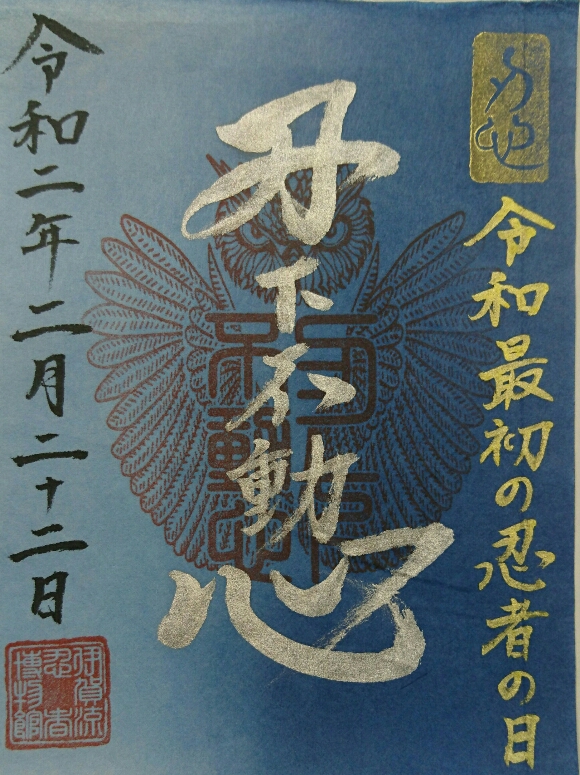 令和最初の忍者の日
刃下不動心
令和二年二月二十二日
伊賀流
忍者
博物館